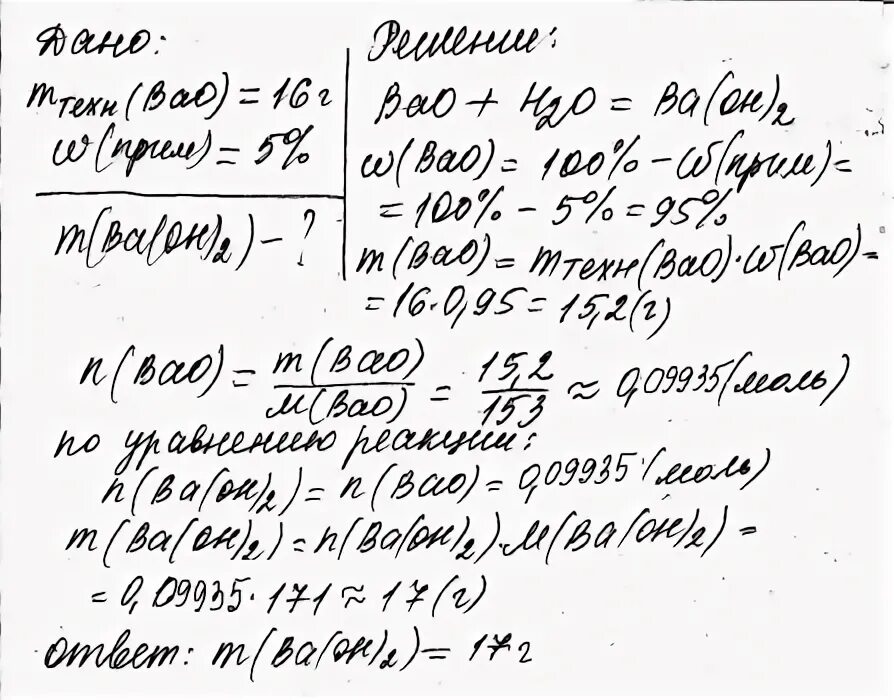 Дано:
m техн (BaO) = 16 г
w(прим) = 5%
m(Ba(OH)₂) – ?
Решение:
BaO + H₂O = Ba(OH)₂
w(BaO) = 100% – w(прим) =
= 100% – 5% = 95%
m(BaO) = m техн(BaO)·w(BaO) =
= 16·0,95 = 15,2(г)
n(BaO) = m(BaO)/M(BaO) = 15,2/153 ≈ 0,09935(моль)
по уравнению реакции:
n(Ba(OH)₂) = n(BaO) = 0,09935(моль)
m(Ba(OH)₂) = n(Ba(OH)₂)·M(Ba(OH)₂) =
= 0,09935·171 ≈ 17(г)
ответ: m(Ba(OH)₂) = 17 г